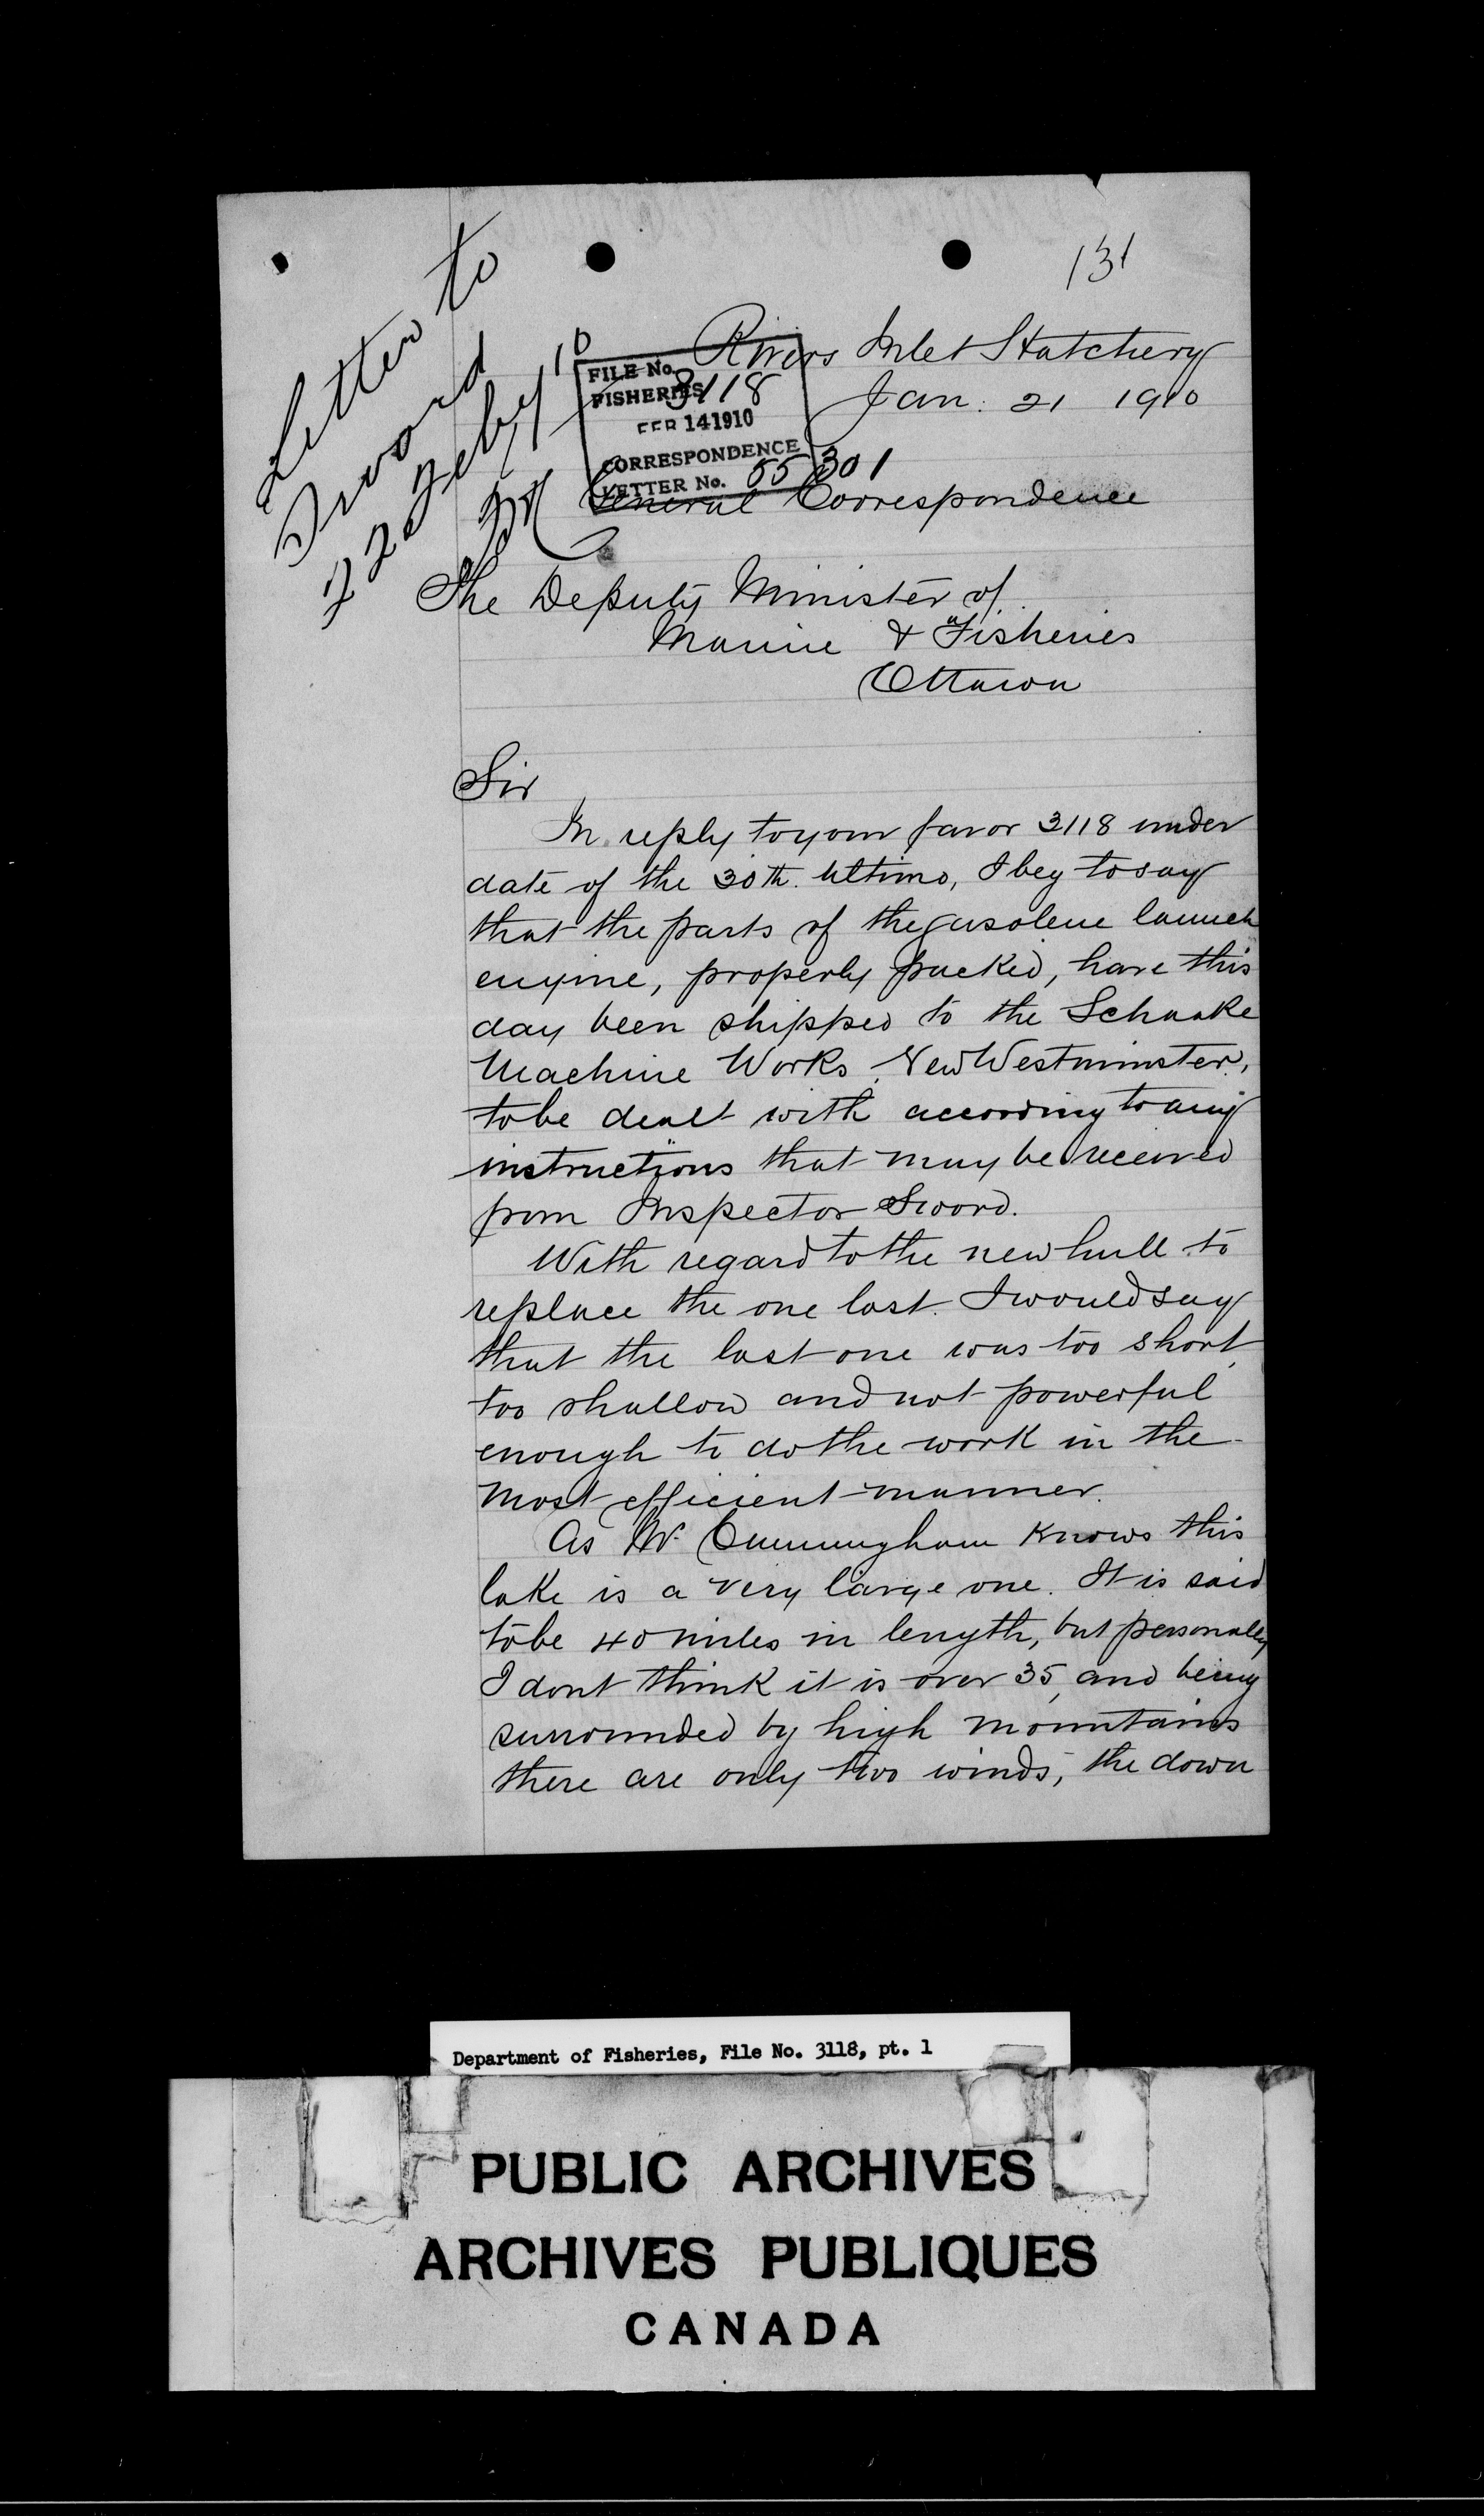 131
Letter to
Sword
22 Feby 10
Rivers Inlet Hatchery
Jan. 21 1910
FILE No.
FISHERIES 3118
FEB 14 1910
CORRESPONDENCE
LETTER No. 55301
General Correspondence
The Deputy Minister of
Marine & Fisheries
Ottawa
Sir
In reply to your favor 3118 under
date of the 30th. Ultimo, I beg to say
that the parts of the gasolene launch
engine, properly packed, have this
day been shipped to the Schaake
Machine Works, New Westminster,
to be dealt with according to any
instructions that may be received
from Inspector Sword.
With regard to the new hull to
replace the one lost. I would say
that the last one was too short
too shallow and not powerful
enough to do the work in the
most efficient manner.
As Mr. Cunningham knows this
lake is a very large one. It is said
to be 40 miles in length, but personally
I dont think it is over 35, and being
surrounded by high mountains
there are only two winds, the down
Department of Fisheries, File No. 3118, pt. 1
PUBLIC ARCHIVES
ARCHIVES PUBLIQUES
CANADA